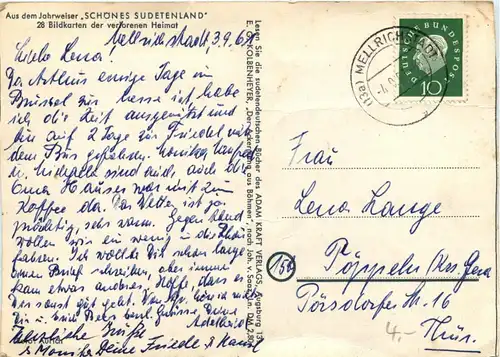 Aus dem Jahrweiser „SCHÖNES SUDETENLAND"
28 Bildkarten der verlorenen Heimat
Mellrichstadt, 3.9.6
Liebe Lena!
Da Arthur einige Tage in
Brüssel zur Messe ist, habe
ich die Zeit ausgenützt und
bin auf 2 Tage zu Friedel mit
dem Bus gefahren. Monika
u. Michaela sind auch, auch die
Oma Hauser war mit zum
Kaffee da. Das Wetter ist ja
prächtig, sehr warm. Gegen Abend
wollen wir ein wenig in die Rhön
fahren. Ich wollte Dir schon lange
einen Brief schreiben, aber immer
kam etwas anderes. Hoffe, dass es
Dir sonst gut geht.
Grüsse Deine
Adelheid
Herzliche Grüße
Monika Deine Friedel
Lesen Sie die sudetendeutschen Bücher des ADAM KRAFT VERLAGS, Augsburg 13
E. G. KOLBENHEYER, „Der Ackermann aus Böhmen", nach Joh. v. Saaz, DM 2,80
(13a) MELLRICHSTADT
DEUTSCHE BUNDESPOST
10
Frau
Lena Lange
15b
Pöppeln Krs. Gera
Pörsdorfer Str. 16
Thür.
4.-